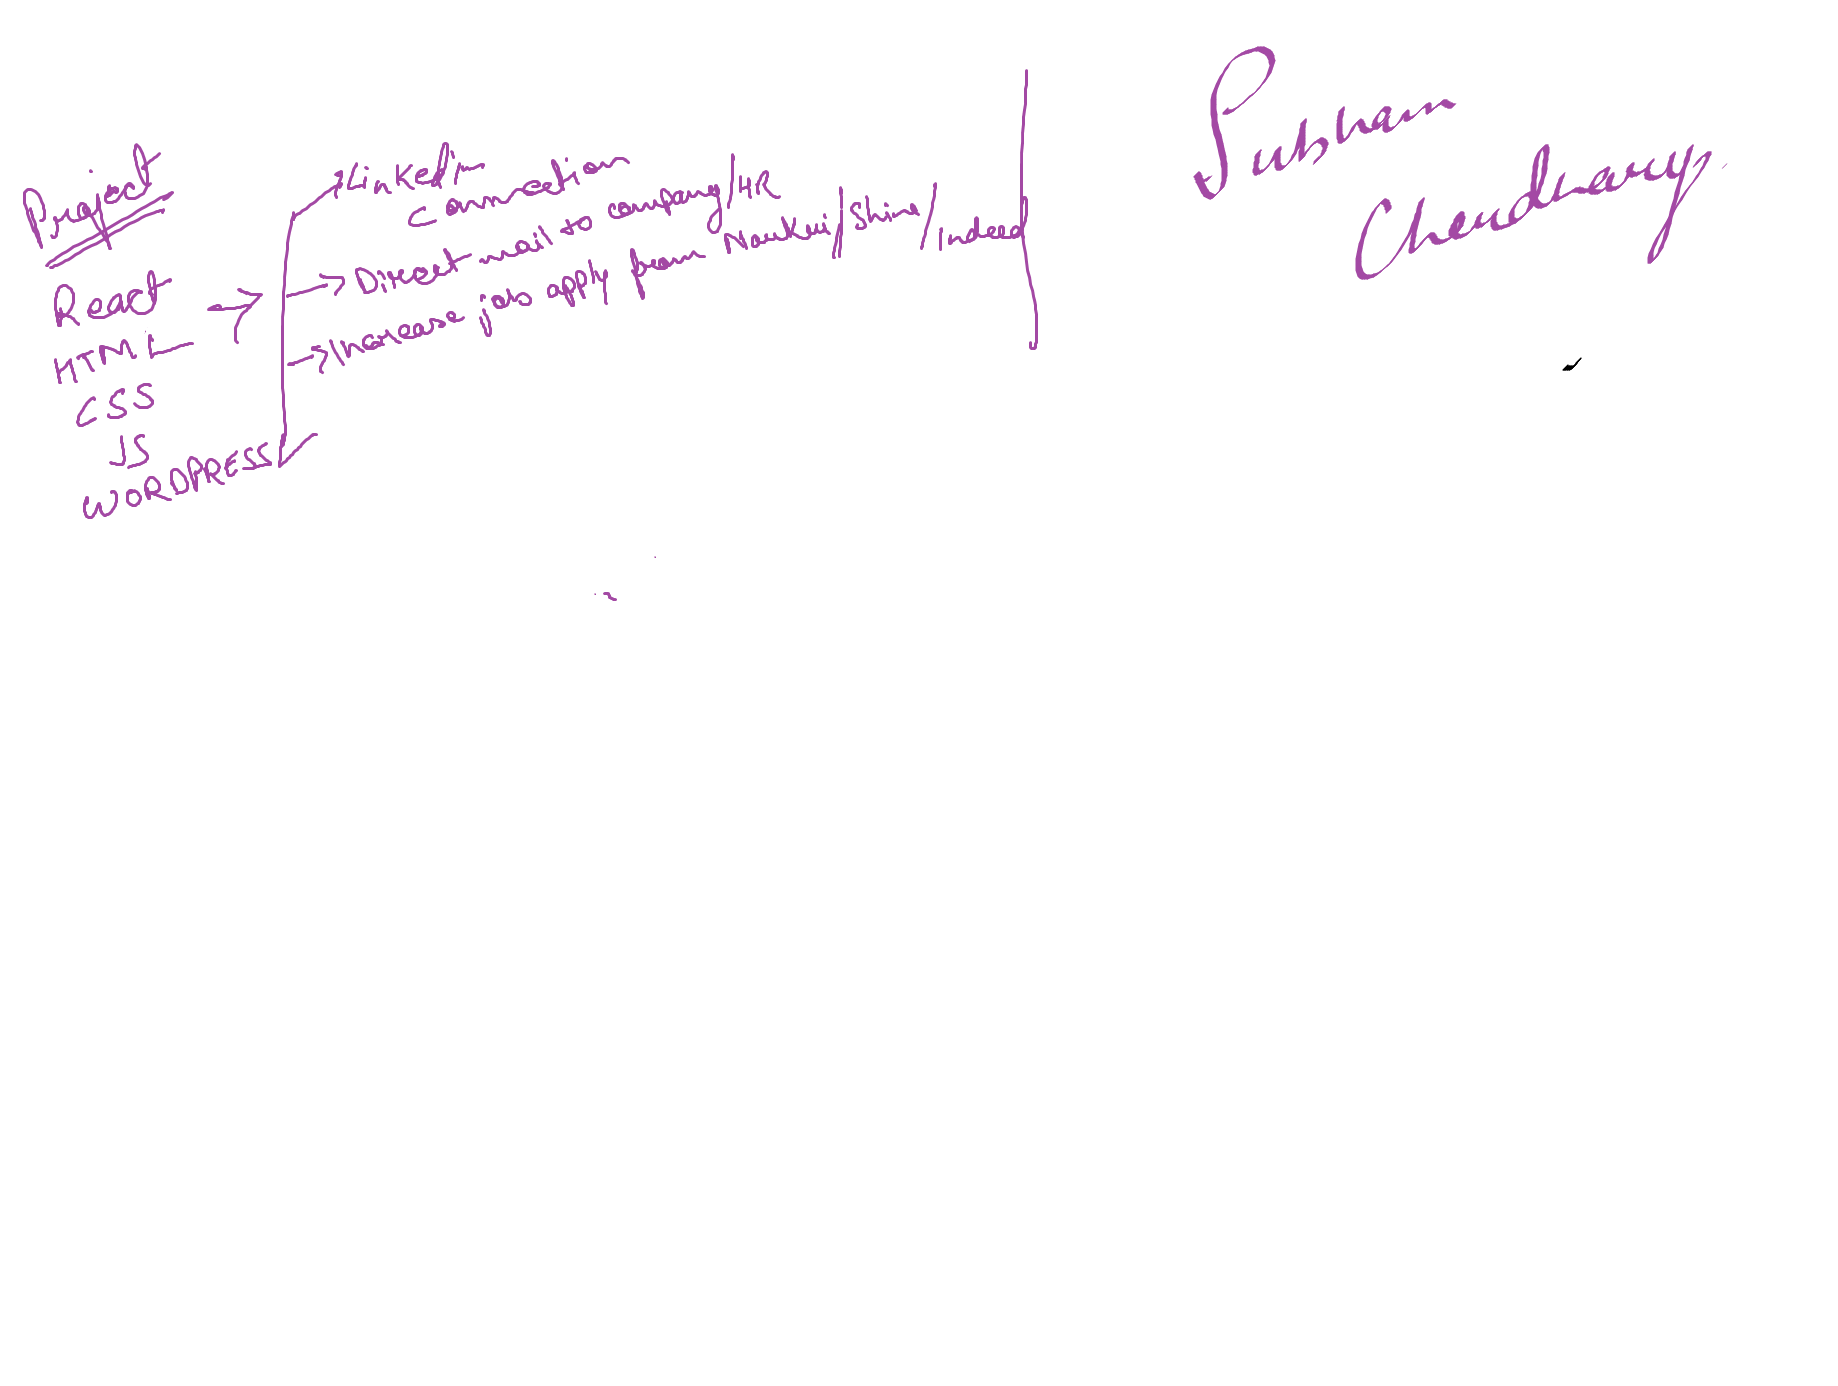 Project
React
HTML
CSS
JS
WORDPRESS
Linkedin
Connection
Direct mail to company/HR
Increase job apply from Naukri/Shine/Indeed
Subham
Choudhary